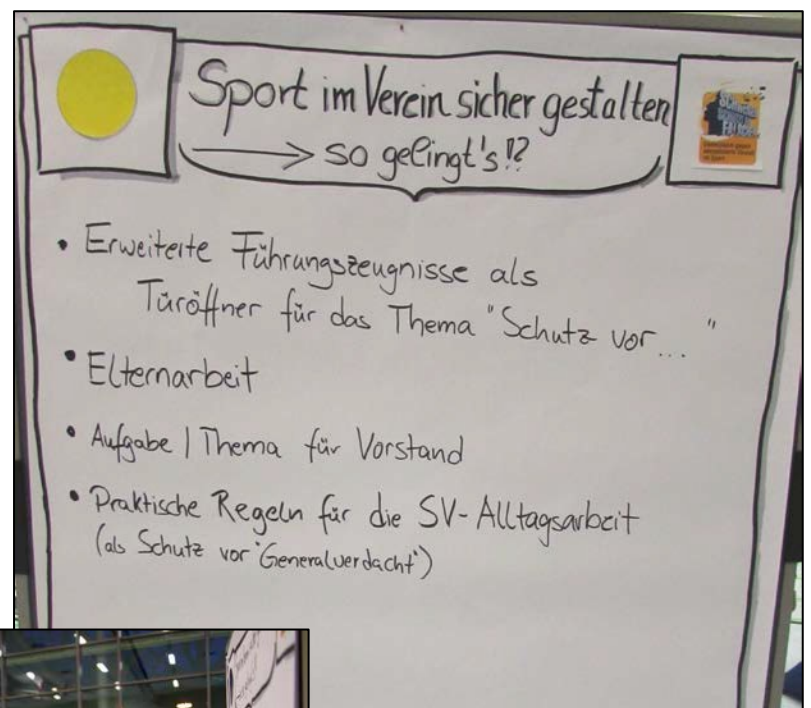 Sport im Verein sicher gestalten
→ so gelingt's!?
• Erweiterte Führungszeugnisse als
Türöffner für das Thema "Schutz vor... "
• Elternarbeit
• Aufgabe | Thema für Vorstand
• Praktische Regeln für die SV-Alltagsarbeit
(als Schutz vor "Generalverdacht")